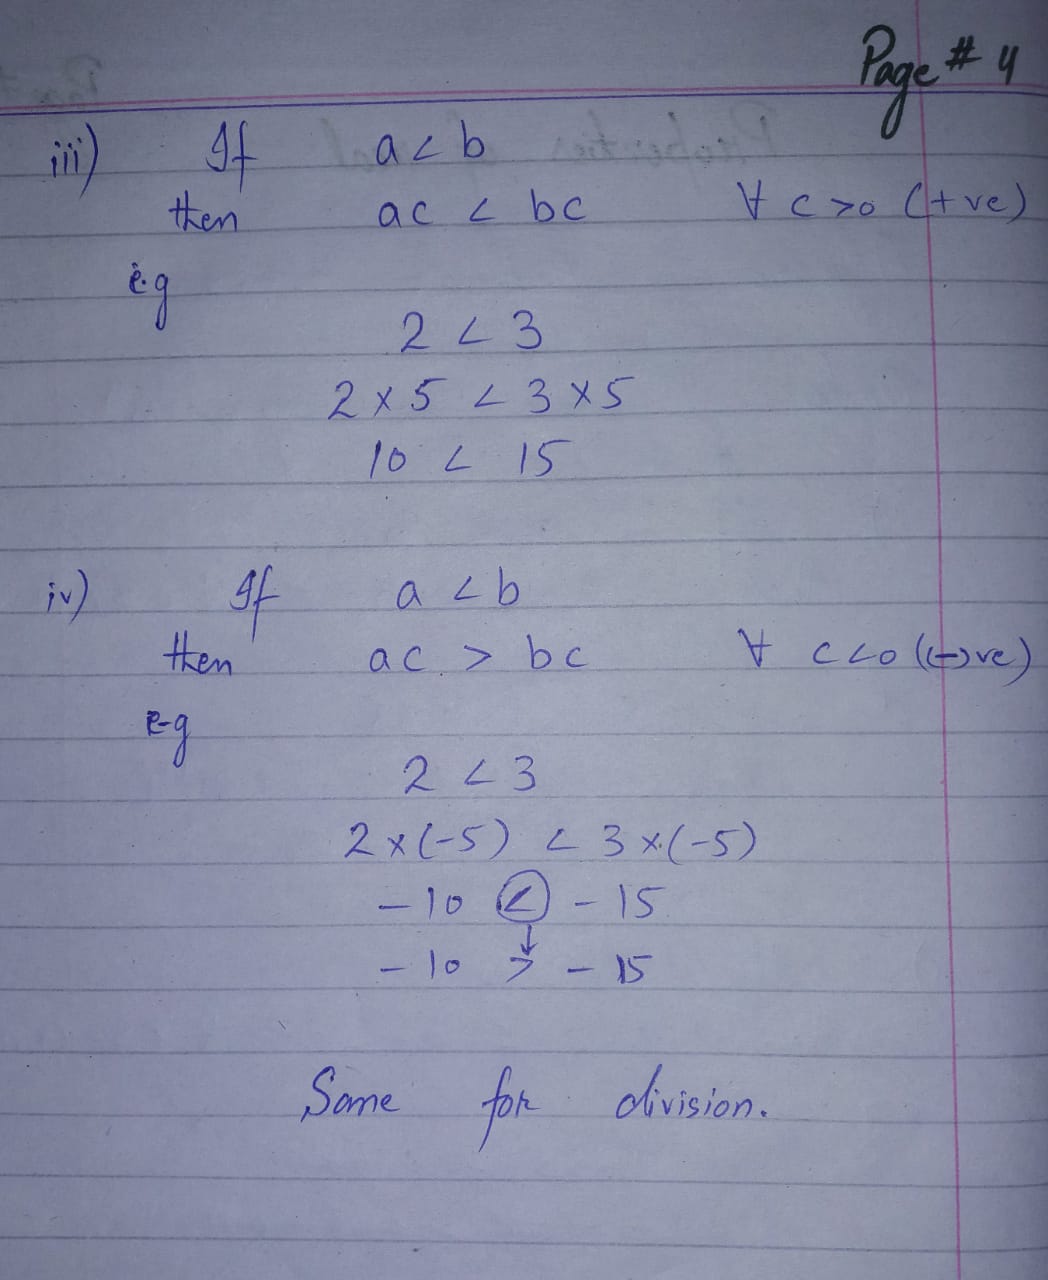 Page # 4
iii) If a < b
then ac < bc ∀ c>0 (+ve)
e.g
2 < 3
2 × 5 < 3 × 5
10 < 15
iv) If a < b
then ac > bc ∀ c<0 ((-)ve)
e-g
2 < 3
2 × (-5) < 3 × (-5)
-10 < -15
↓
-10 > -15
Same for division.